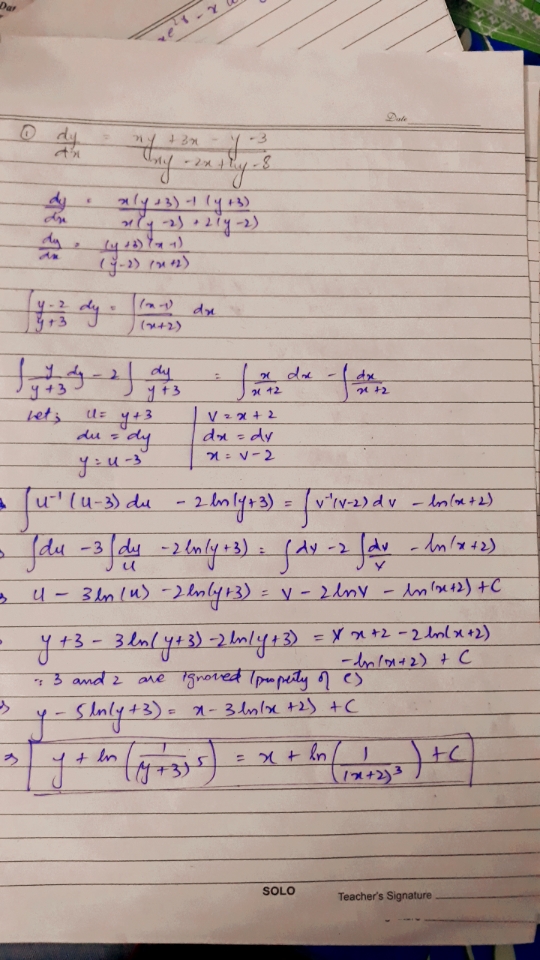 Date
① dy/dx = xy + 3x - y - 3 / xy - 2x + y - 8
dy/dx = x(y+3) - 1(y+3) / x(y-2) + 2(y-2)
dy/dx = (y+3)(x-1) / (y-2)(x+2)
∫ y-2/y+3 dy = ∫ (x-1)/(x+2) dx
∫ y/y+3 dy - 2∫ dy/y+3 = ∫ x/x+2 dx - ∫ dx/x+2
let; u = y+3 | v = x+2
du = dy | dx = dv
y = u-3 | x = v-2
∫ u⁻¹(u-3) du - 2ln(y+3) = ∫ v⁻¹(v-2) dv - ln(x+2)
∫ du - 3∫ du/u - 2ln(y+3) = ∫ dv - 2∫ dv/v - ln(x+2)
u - 3ln(u) - 2ln(y+3) = v - 2lnv - ln(x+2) + C
y+3 - 3ln(y+3) - 2ln(y+3) = x+2 - 2ln(x+2)
- ln(x+2) + C
∵ 3 and 2 are ignored (property of C)
y - 5ln(y+3) = x - 3ln(x+2) + C
⇒ y + ln(1/(y+3)⁵) = x + ln(1/(x+2)³) + C
SOLO Teacher's Signature